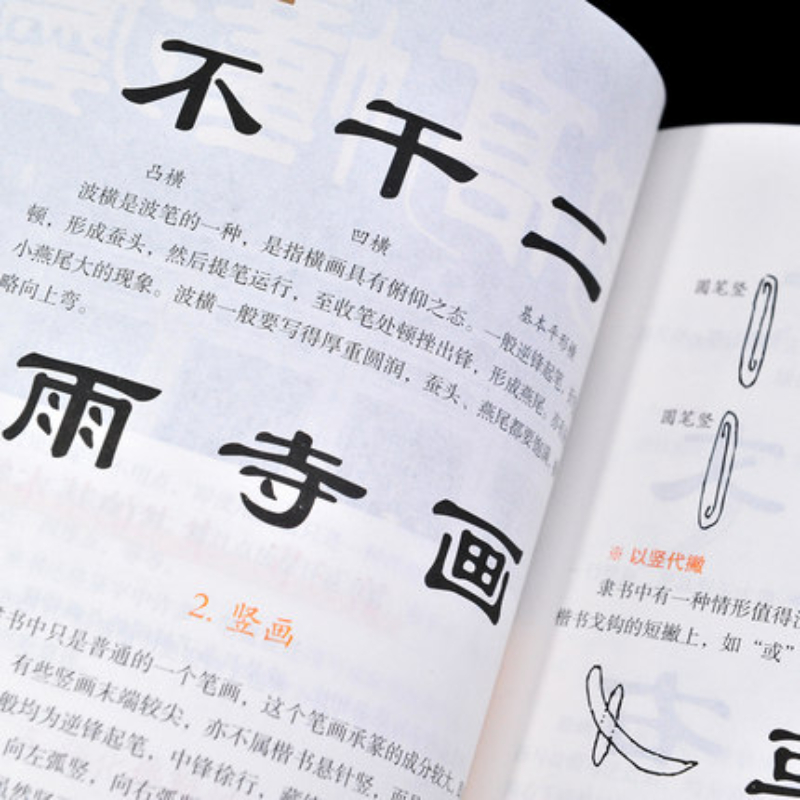 不 干 二
凸横
凹横
基本平形横
波横是波笔的一种，是指横画具有俯仰之态。一般逆锋起笔，
顿，形成蚕头，然后提笔运行，至收笔处顿挫出锋，形成燕尾。
小燕尾大的现象。波横一般要写得厚重圆润，蚕头、燕尾都要饱满，
略向上弯。
雨 寺 画
2. 竖画
隶书中只是普通的一个笔画，这个笔画承篆的成分较大，
有些竖画末端较尖，亦不属楷书悬针竖，而
般均为逆锋起笔，中锋徐行，
向左弧竖，向右弧
圆笔竖
圆笔竖
※ 以竖代撇
隶书中有一种情形值得
楷书戈钩的短撇上，如“或”